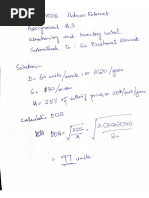 Assignment #3
Warehousing and Inventory Control
Submitted to: Sir Dushmant Ekanat
Solution:-
D = 60 units/week, or 3120/year
S = $30/order
H = 25% of selling price, or 20$/unit/year
Calculate EOQ
EOQ = √2DS/H = √2(3120)(30)/20
= 97 units